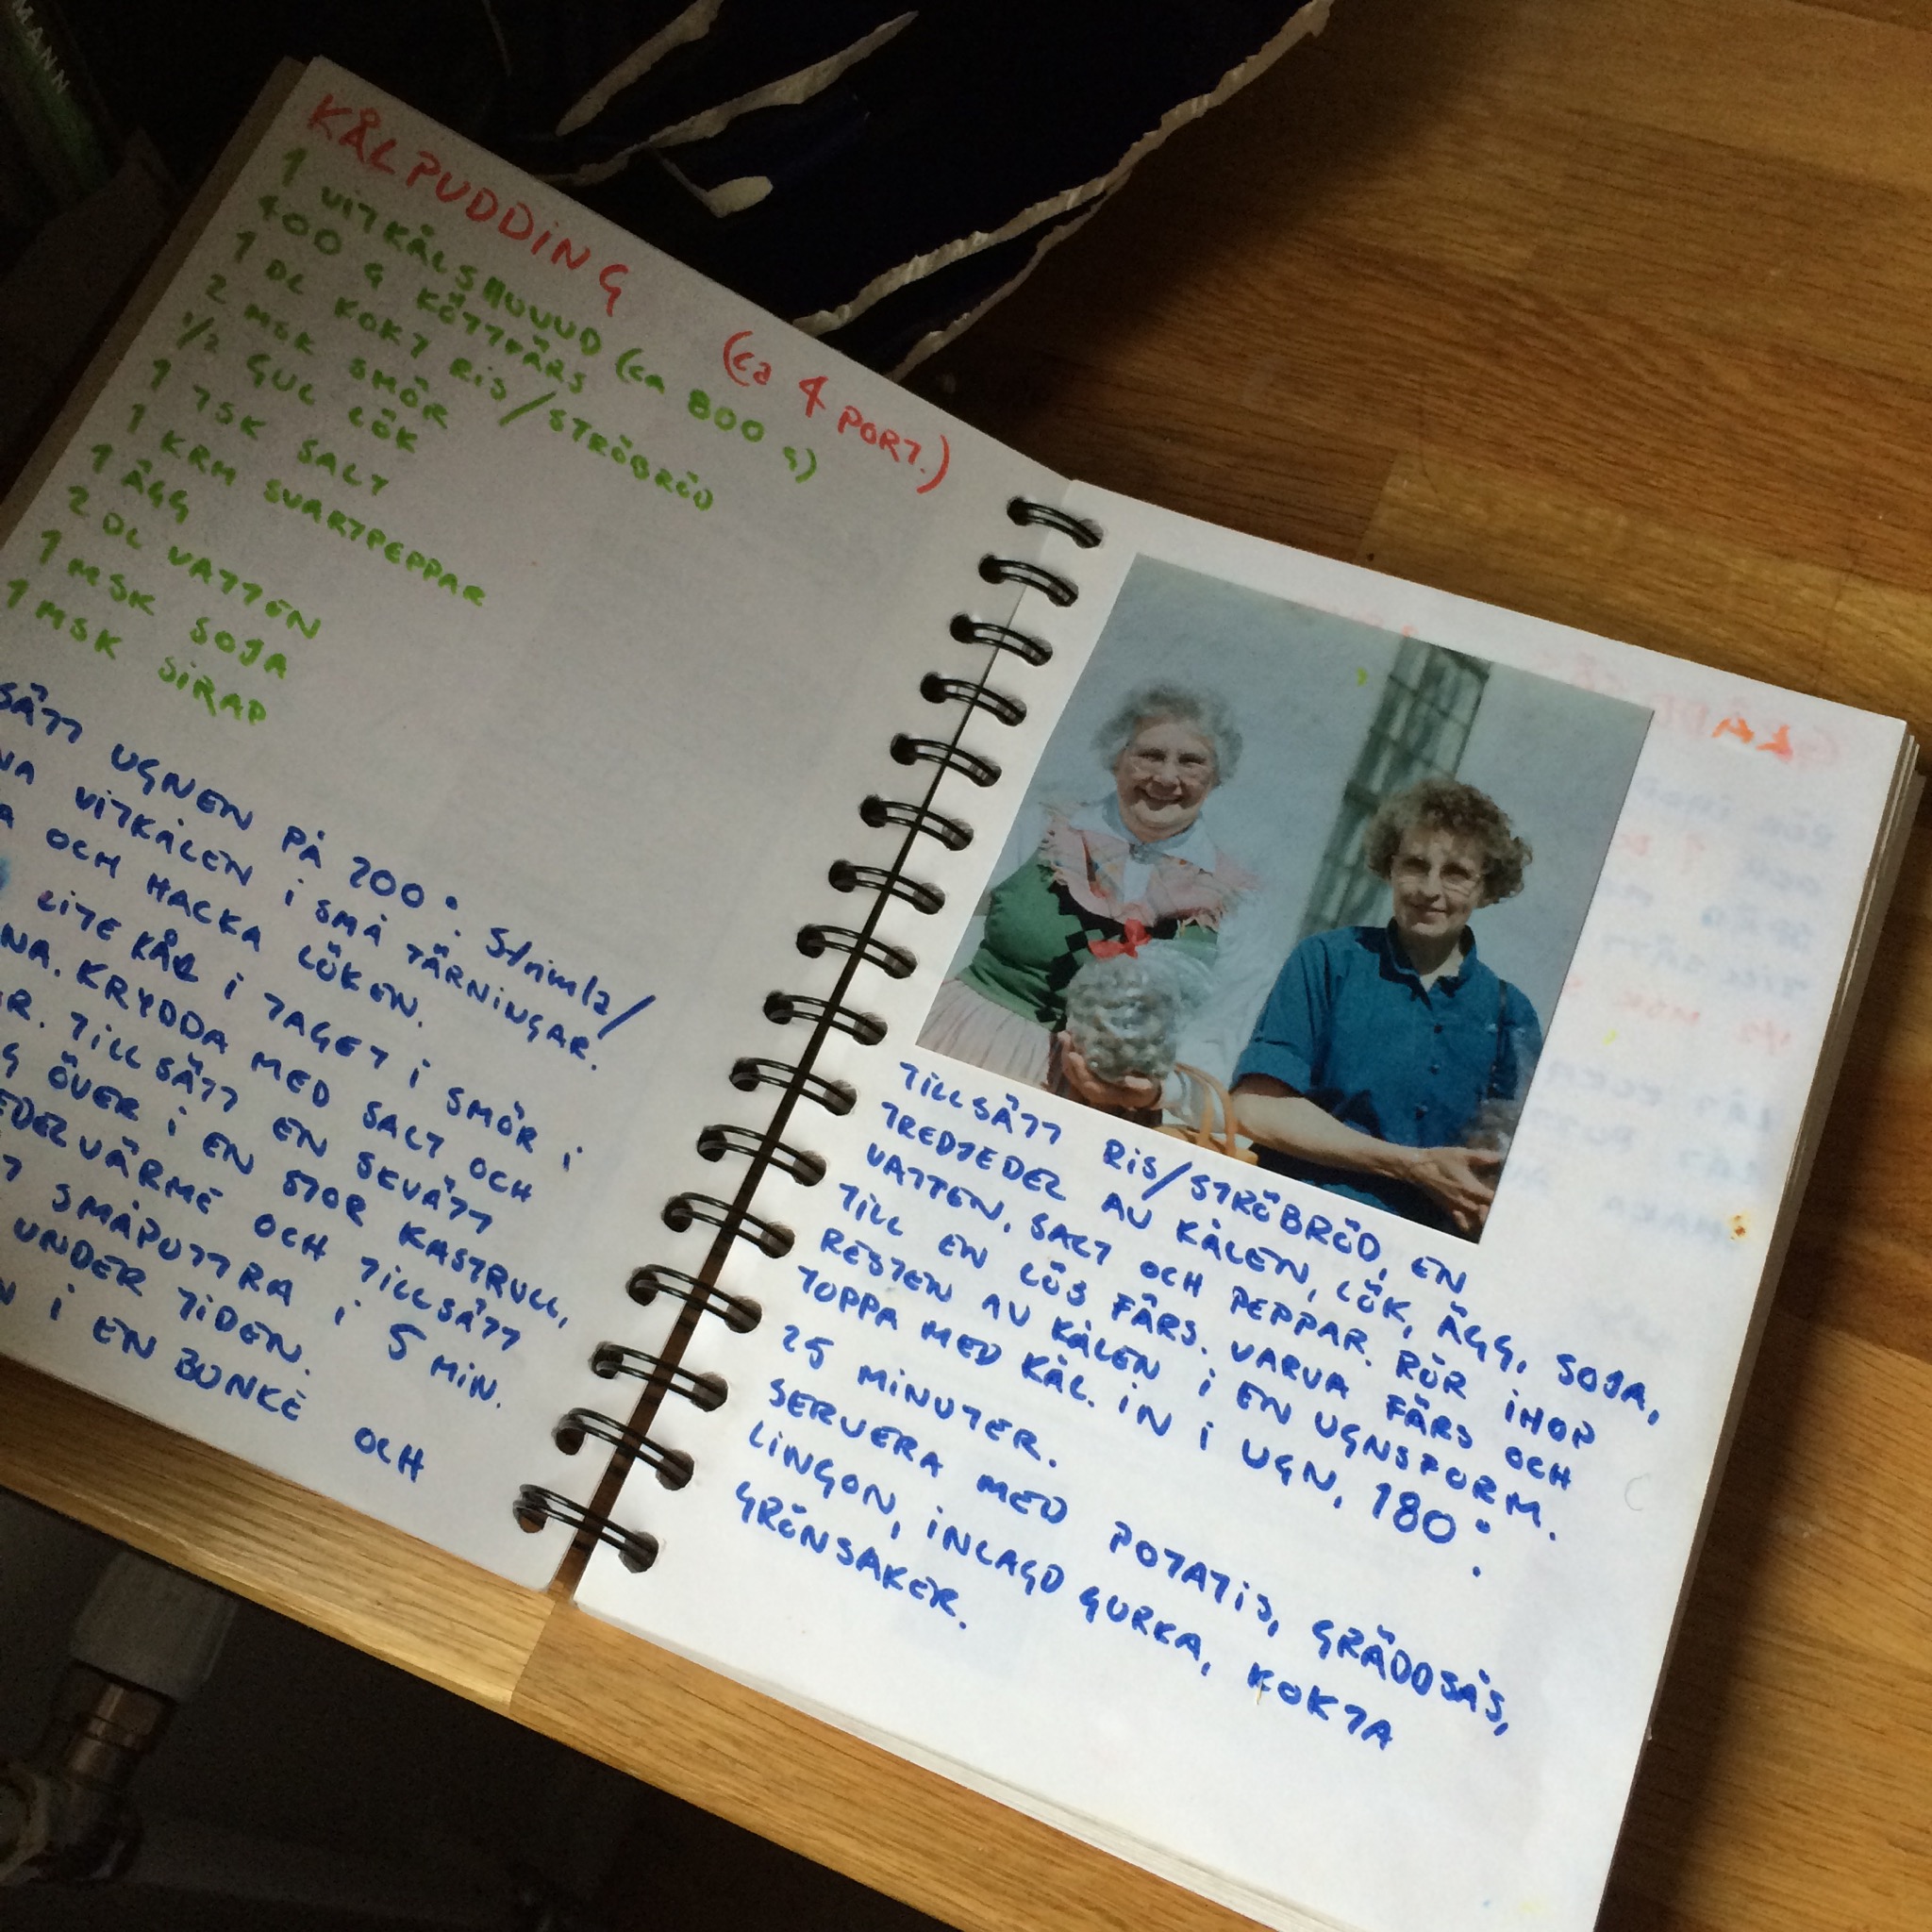 MANN
KÅLPUDDING (ca 4 PORT.)
1 VITKÅLSHUVUD (CA 800 G)
400 G KÖTTFÄRS
1 DL KOKT RIS/STRÖBRÖD
2 MSK SMÖR
1/2 GUL LÖK
1 TSK SALT
1 KRM SVARTPEPPAR
1 ÄGG
2 DL VATTEN
1 MSK SOJA
1 MSK SIRAP
SÄTT UGNEN PÅ 200°. Strimla/
VITKÅLEN I SMÅ TÄRNINGAR.
OCH HACKA LÖKEN.
LITE KÅL I TAGET I SMÖR I
KRYDDA MED SALT OCH
TILLSÄTT EN SKVÄTT
ÖVER I EN STOR KASTRULL,
OCH TILLSÄTT
SMÅPUTTRA I 5 MIN.
UNDER TIDEN.
I EN BUNKE OCH
TILLSÄTT RIS/STRÖBRÖD, EN
TREDJEDEL AV KÅLEN, LÖK, ÄGG, SOJA,
VATTEN, SALT OCH PEPPAR. RÖR IHOP
TILL EN LÖS FÄRS. VARVA FÄRS OCH
RESTEN AV KÅLEN I EN UGNSFORM.
TOPPA MED KÅL. IN I UGN, 180°.
25 MINUTER.
SERVERA MED POTATIS, GRÄDDSÅS,
LINGON, INLAGD GURKA, KOKTA
GRÖNSAKER.